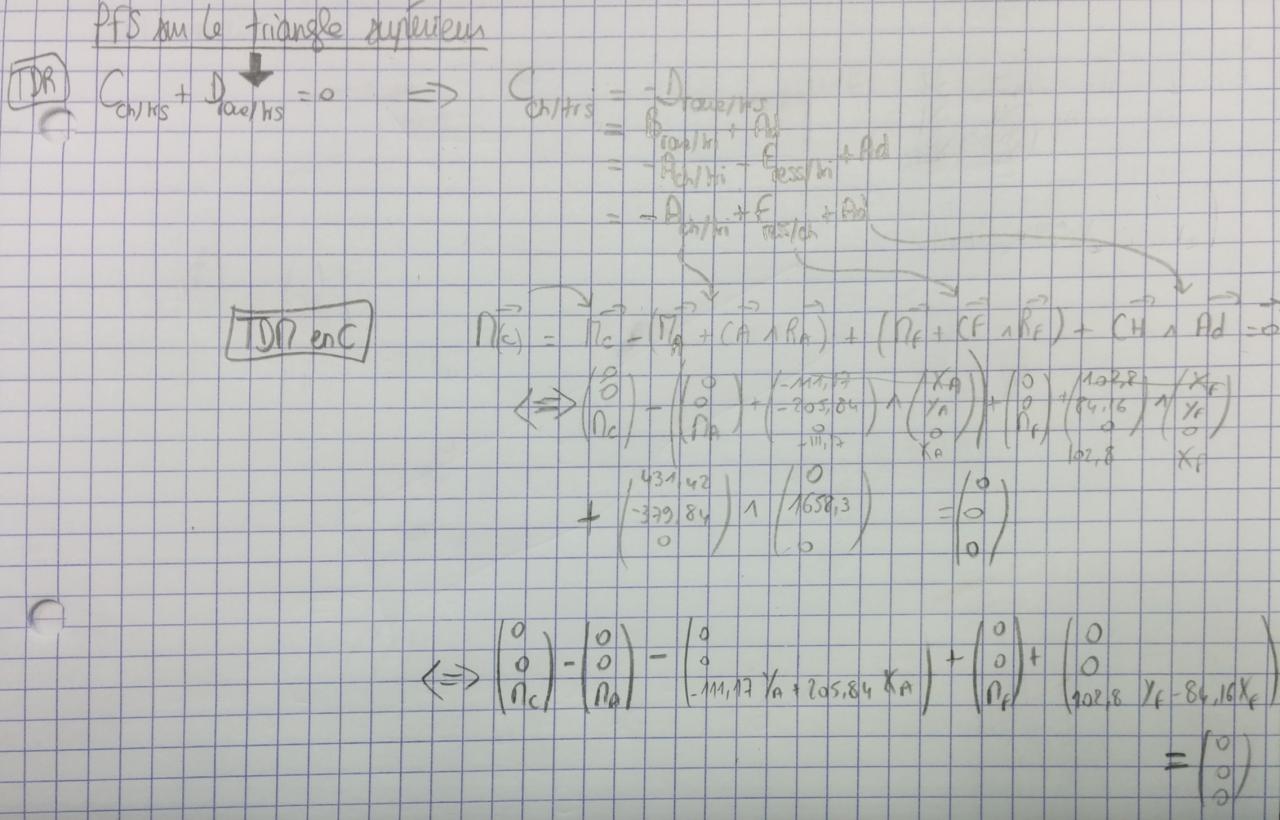 PFS sur le triangle supérieur
TDR C_ch/ts + D_roue/ts = 0 ⇒ C_ch/ts = -D_roue/ts
= D_roue/ti + Ad
= -A_ch/ti - E_ress/ti + Ad
= -A_ch/ti + F_ress/ch + Ad
TDM en C M(C) = M_C - (M_A + CA ∧ R_A) + (M_F + CF ∧ R_F) + CH ∧ Ad = 0
⇔ (0 0 M_C) - ((0 0 M_A) + (-111,17 -205,84 0) ∧ (X_A Y_A 0)) + (0 0 M_F) + (102,8 84,16 0) ∧ (X_F Y_F 0)
-111,17 X_A 102,8 X_F
+ (431,42 -379,84 0) ∧ (0 1658,3 0) = (0 0 0)
⇔ (0 0 M_C) - (0 0 M_A) - (0 0 -111,17 Y_A + 205,84 X_A) + (0 0 M_F) + (0 0 102,8 Y_F - 84,16 X_F)
= (0 0 0)